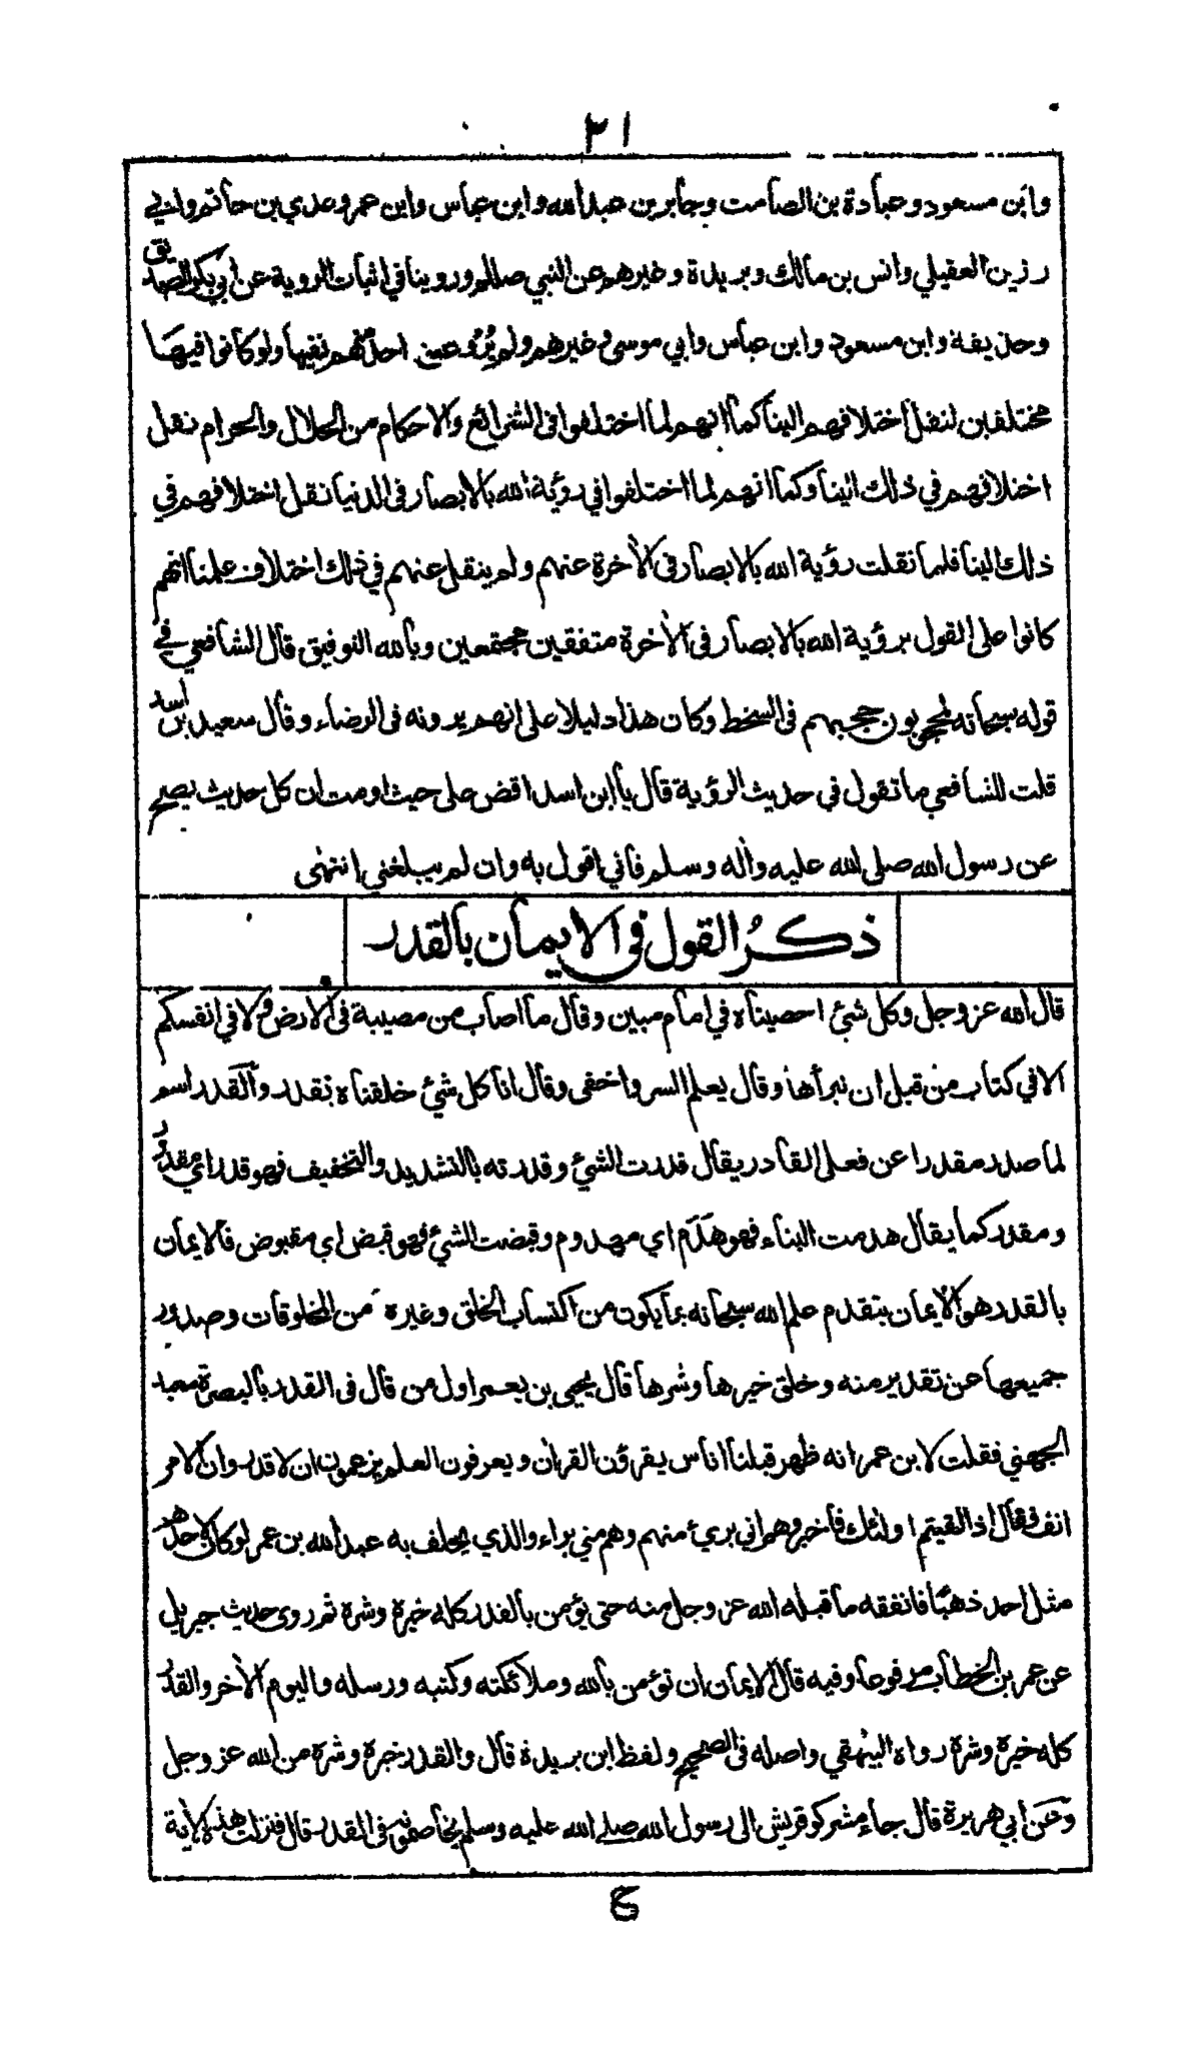 ٣١
وابن مسعود وعبادة بن الصامت وجابر بن عبد الله وابن عباس وابن عمر وعدي بن حاتم وابي
رزين العقيلي وانس بن مالك وبريدة وغيرهم عن النبي صللم وروينا في اثبات الروية عن ابي بكر الصديق
وحذيفة وابن مسعود وابن عباس وابي موسى وغيرهم ولم يُرْو عن احدٍ منهم نفيها ولو كانوا فيها
مختلفين لنقل اختلافهم الينا كما انهم لما اختلفوا في الشرائع والاحكام من الحلال والحرام نقل
اختلافهم في ذلك الينا وكما انهم لما اختلفوا في رؤية الله بالابصار في الدنيا نقل اختلافهم في
ذلك الينا فلما نقلت رؤية الله بالابصار في الاخرة عنهم ولم ينقل عنهم في ذلك اختلاف علمنا انهم
كانوا على القول برؤية الله بالابصار في الاخرة متفقين مجتمعين وبالله التوفيق قال الشافعي في
قوله سبحانه لمحجوبون حجبهم في السخط وكان هذا دليلا على انهم يرونه في الرضاء وقال سعيد بن اسد
قلت للشافعي ما تقول في حديث الرؤية قال يا ابن اسد اقض على حييت او مت ان كل حديث يصح
عن رسول الله صلى الله عليه واله وسلم فاني اقول به وان لم يبلغني انتهى
ذكرُ القول في الايمان بالقدر
قال الله عز وجل وكل شئ احصيناه في امام مبين وقال ما اصاب من مصيبة في الارض ولا في انفسكم
الا في كتاب من قبل ان نبرأها وقال يعلم السر واخفى وقال انا كل شئ خلقناه بقدر والقدر اسم
لما صدر مقدرا عن فعل القادر يقال قدرت الشئ وقدرته بالتشديد والتخفيف فهو قدر اي مقدور
ومقدر كما يقال هدمت البناء فهو هَدَم اي مهدوم وقبضت الشئ فهو قبض اي مقبوض فالايمان
بالقدر هو الايمان بتقدم علم الله سبحانه بما يكون من اكتساب الخلق وغيره من المخلوقات وصدور
جميعها عن تقدير منه وخلق خيرها وشرها قال يحيى بن يعمر اول من قال في القدر بالبصرة معبد
الجهني فقلت لابن عمر انه ظهر قبلنا اناس يقرؤن القران ويعرفون العلم يزعمون ان لا قدر وان الامر
انف فقال اذا لقيتم اولئك فاخبروهم اني بريئ منهم وهم مني براء والذي يحلف به عبد الله بن عمر لو كان لاحدهم
مثل احد ذهبًا فانفقه ما قبله الله عز وجل منه حتى يؤمن بالقدر كله خيرة وشرة ثم روى حديث جبريل
عن عمر بن الخطاب مرفوعا وفيه قال الايمان ان تؤمن بالله وملائكته وكتبه ورسله واليوم الاخر والقدر
كله خيرة وشرة رواه البيهقي واصله في الصحيح ولفظ ابن بريدة قال والقدر خيرة وشرة من الله عز وجل
وعن ابي هريرة قال جاء مشركو قريش الى رسول الله صلى الله عليه وسلم يخاصمونه في القدر قال فنزلت هذه الاية
ع